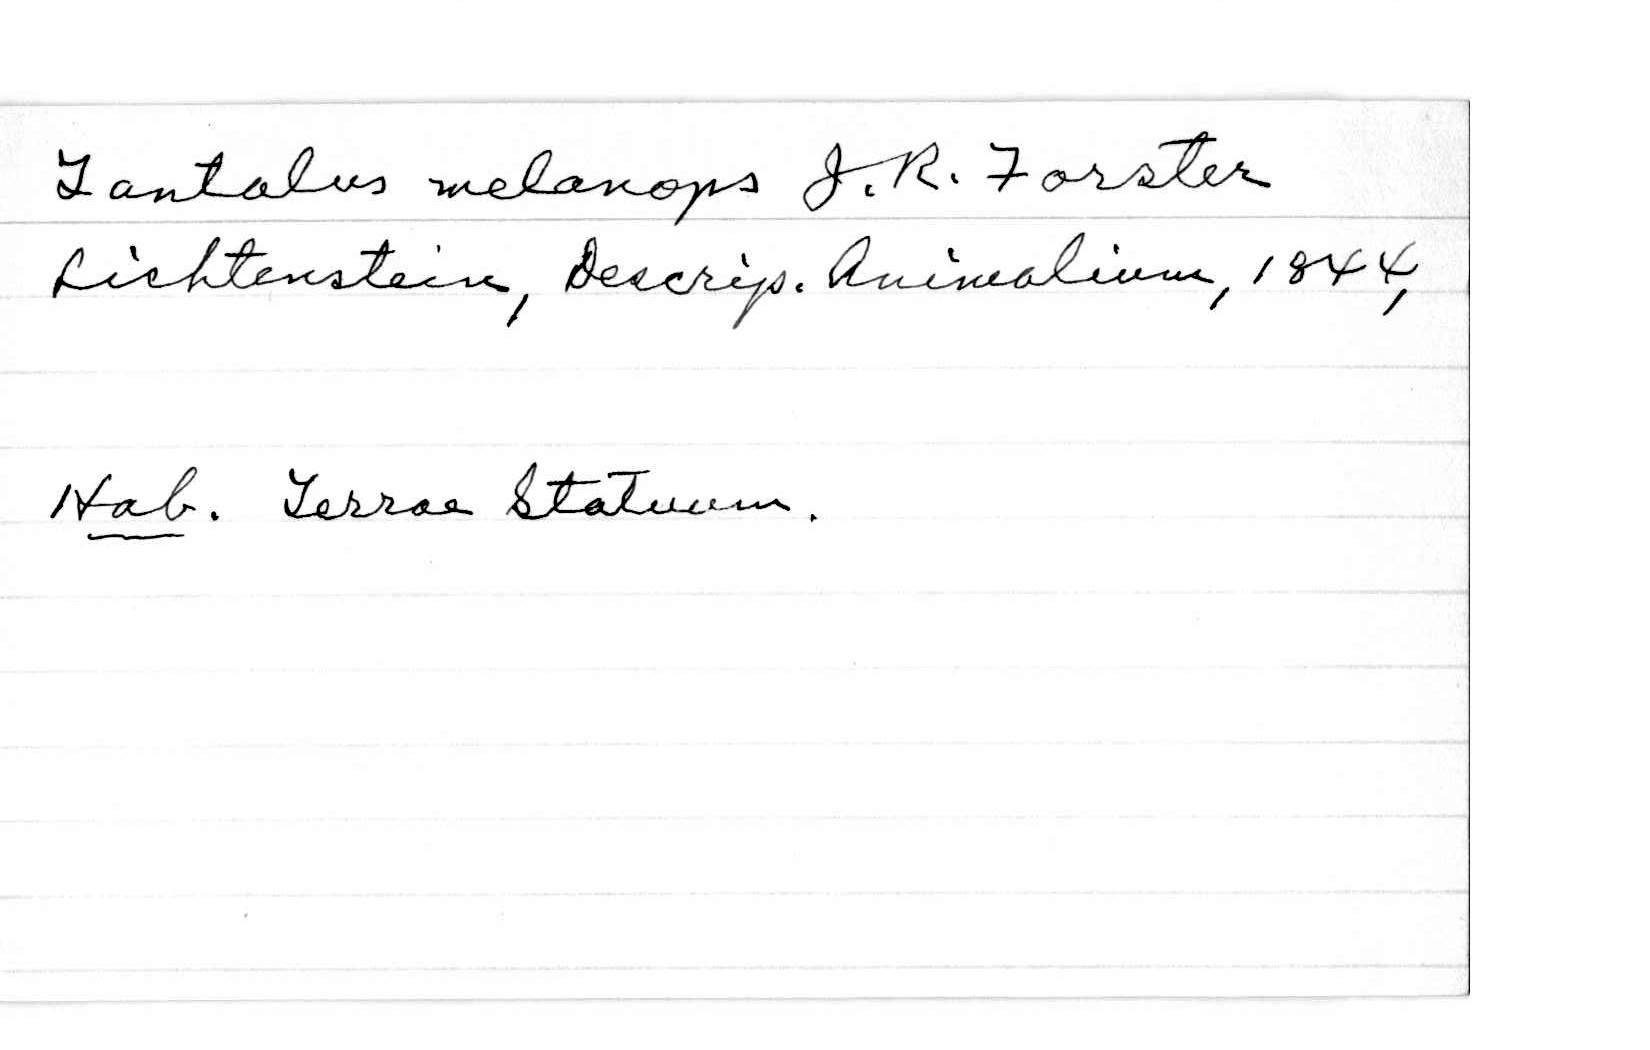 Tantalus melanops J. R. Forster
Lichtenstein, Descrip. Animalium, 1844,
Hab. Terrae Statuum.